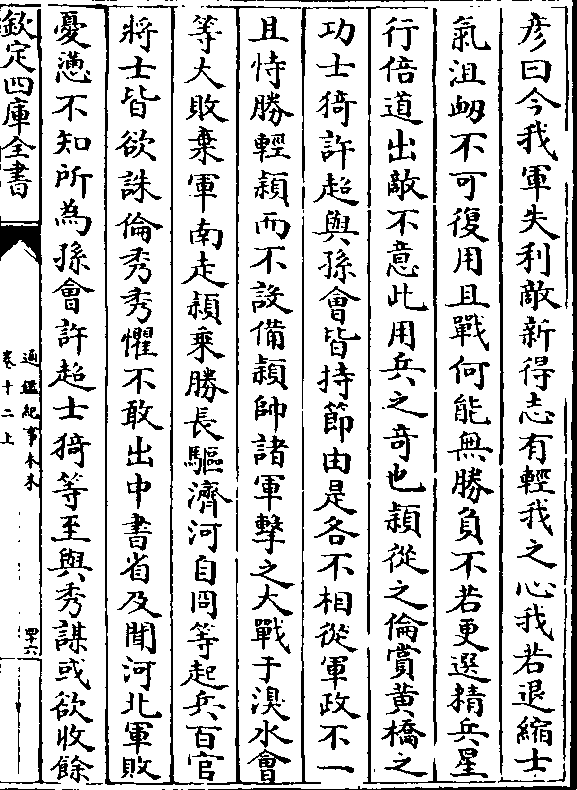 彦曰今我軍失利敵新得志有輕我之心我若退縮士
氣沮衂不可復用且戰何能無勝負不若更選精兵星
行倍道出敵不意此用兵之奇也穎從之倫賞黄橋之
功士猗許超與孫會皆持節由是各不相從軍政不一
且恃勝輕穎而不設備穎帥諸軍擊之大戰于湨水會
等大敗棄軍南走穎乗勝長驅濟河自冏等起兵百官
將士皆欲誅倫秀秀懼不敢出中書省及聞河北軍敗
憂懣不知所為孫會許超士猗等至與秀謀或欲收餘
欽定四庫全書
通鑑紀事本末
卷十二上
四十六